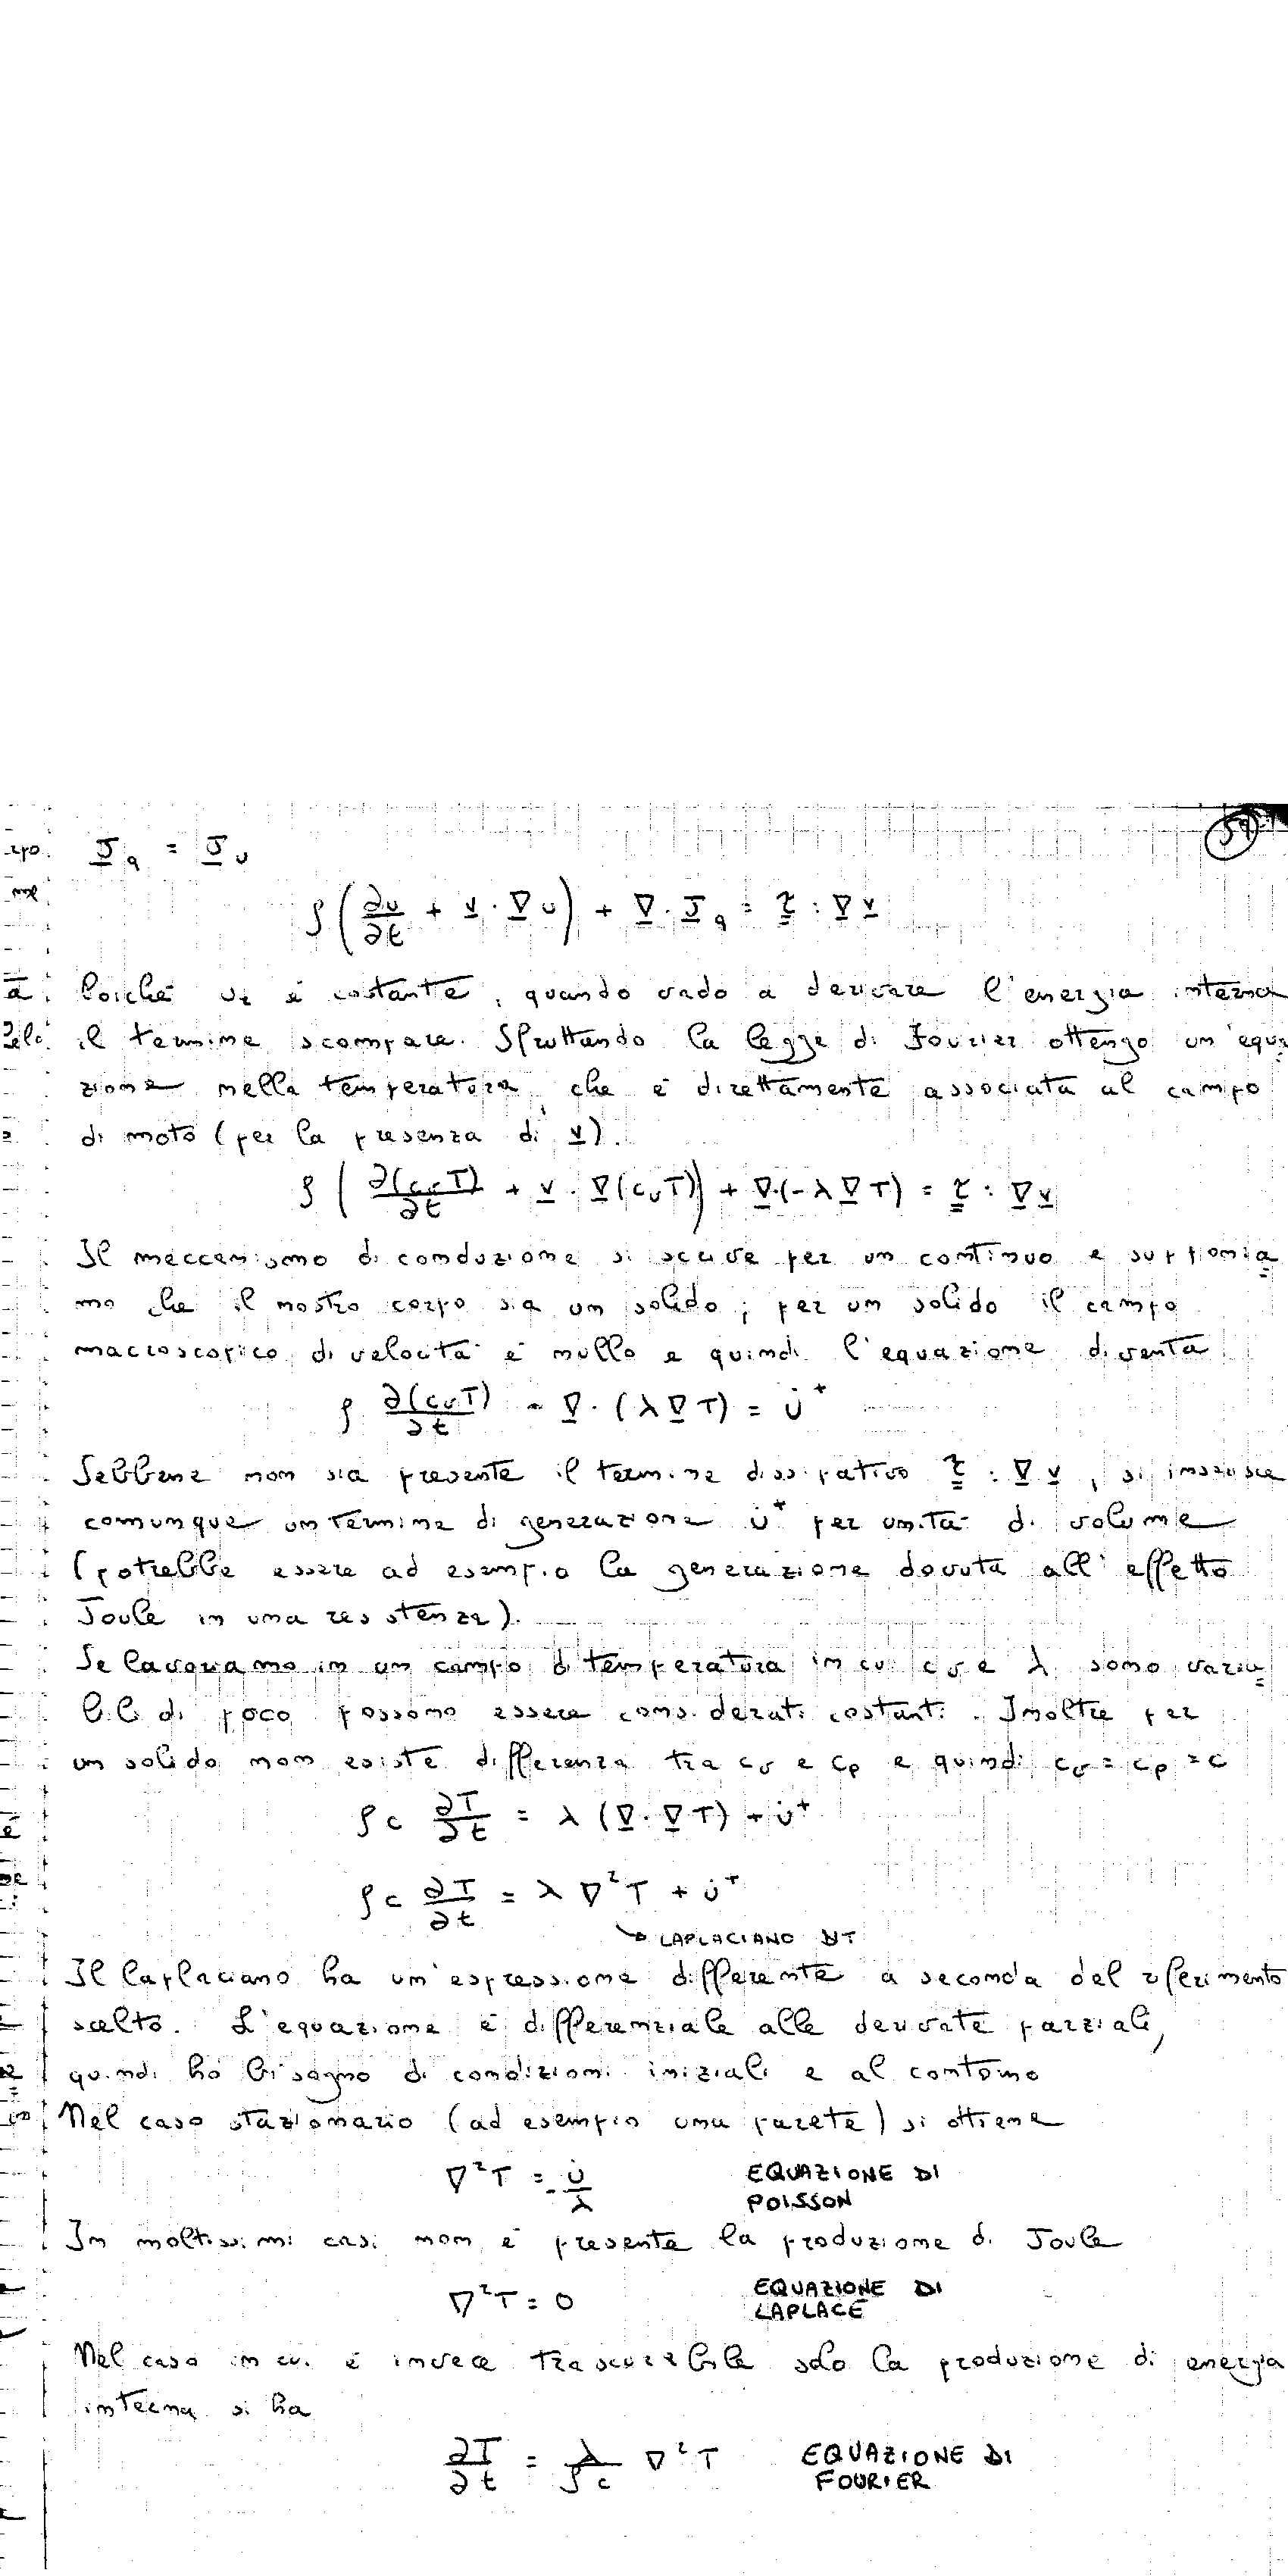 J_q = J_u
ρ(∂u/∂t + v · ∇u) + ∇ · J_q = τ : ∇v
Poiché è costante, quando vado a derivare l'energia interna
il termine scompare. Sfruttando la legge di Fourier ottengo un'equa
zione nella temperatura, che è direttamente associata al campo
di moto (per la presenza di v).
ρ(∂(c_v T)/∂t + v · ∇(c_v T)) + ∇·(-λ∇T) = τ : ∇v
Il meccanismo di conduzione si scrive per un continuo e supponia
mo che il nostro corpo sia un solido; per un solido il campo
macroscopico di velocità è nullo e quindi l'equazione diventa
ρ ∂(c_v T)/∂t - ∇ · (λ∇T) = u̇⁺
Sebbene non sia presente il termine dissipativo τ : ∇v, si inserisce
comunque un termine di generazione u̇⁺ per unità di volume
(potrebbe essere ad esempio la generazione dovuta all'effetto
Joule in una resistenza).
Se lavoriamo in un campo di temperatura in cui c_v e λ sono varia
bili di poco possono essere considerati costanti. Inoltre per
un solido non esiste differenza tra c_v e c_p e quindi c_v = c_p = c
ρc ∂T/∂t = λ(∇·∇T) + u̇⁺
ρc ∂T/∂t = λ∇²T + u̇⁺
→ LAPLACIANO DI T
Il laplaciano ha un'espressione differente a seconda del riferimento
scelto. L'equazione è differenziale alle derivate parziali,
quindi ho bisogno di condizioni iniziali e al contorno
Nel caso stazionario (ad esempio una parete) si ottiene
∇²T = -u̇/λ EQUAZIONE DI
POISSON
In moltissimi casi non è presente la produzione di Joule
∇²T = 0 EQUAZIONE DI
LAPLACE
Nel caso in cui è invece trascurabile solo la produzione di energia
interna si ha
∂T/∂t = λ/ρc ∇²T EQUAZIONE DI
FOURIER